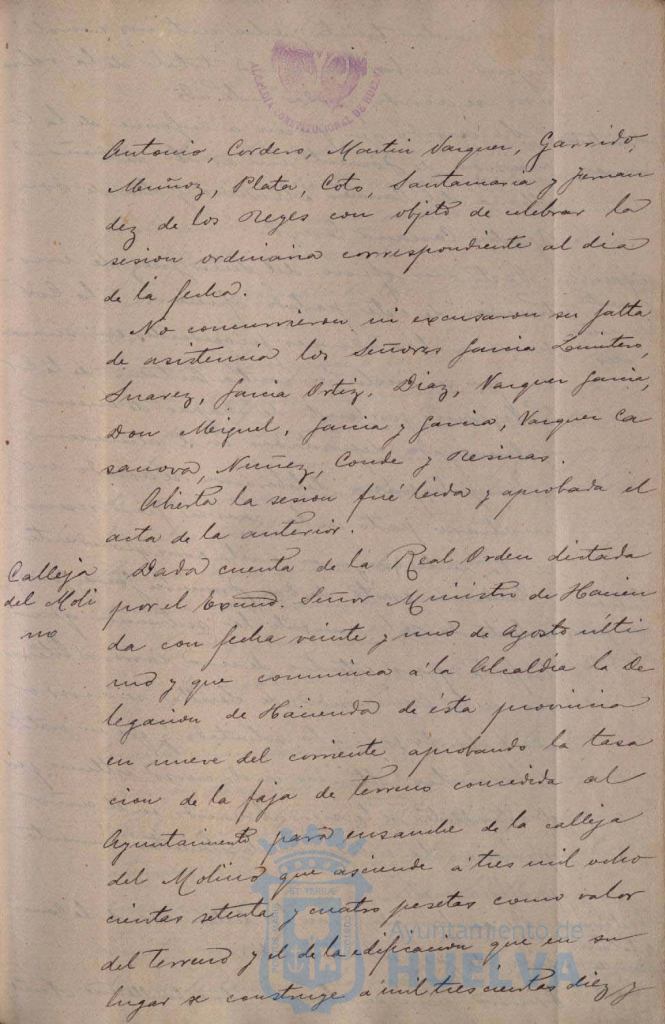 ALCALDIA CONSTITUCIONAL DE HUELVA
Antonio, Cordero, Martin Vazquez, Garrido,
Muñoz, Plata, Coto, Santamaria y Fernan
dez de los Reyes con objeto de celebrar la
sesion ordinaria correspondiente al dia
de la fecha.
No concurrieron ni excusaron su falta
de asistencia los Señores Garcia Quintero,
Suarez, Garcia Ortiz, Diaz, Vazquez Garcia,
Don Miguel, Garcia y Garcia, Vazquez Ca
sanova, Nuñez, Conde y Resinas.
Abierta la sesion fué leida y aprobada el
acta de la anterior.
Calleja
del Moli
no
Dada cuenta de la Real Orden dictada
por el Excmo. Señor Ministro de Hacien
da con fecha veinte y uno de Agosto últi
mo y que comunica á la Alcaldia la De
legacion de Hacienda de ésta provincia
en nueve del corriente aprobando la tasa
cion de la faja de terreno concedida al
Ayuntamiento para ensanche de la calleja
del Molino que asciende á tres mil ocho
cientas setenta y cuatro pesetas como valor
del terreno y el de la edificacion que en su
lugar se construye á mil trescientas diez y
Ayuntamiento de
HUELVA